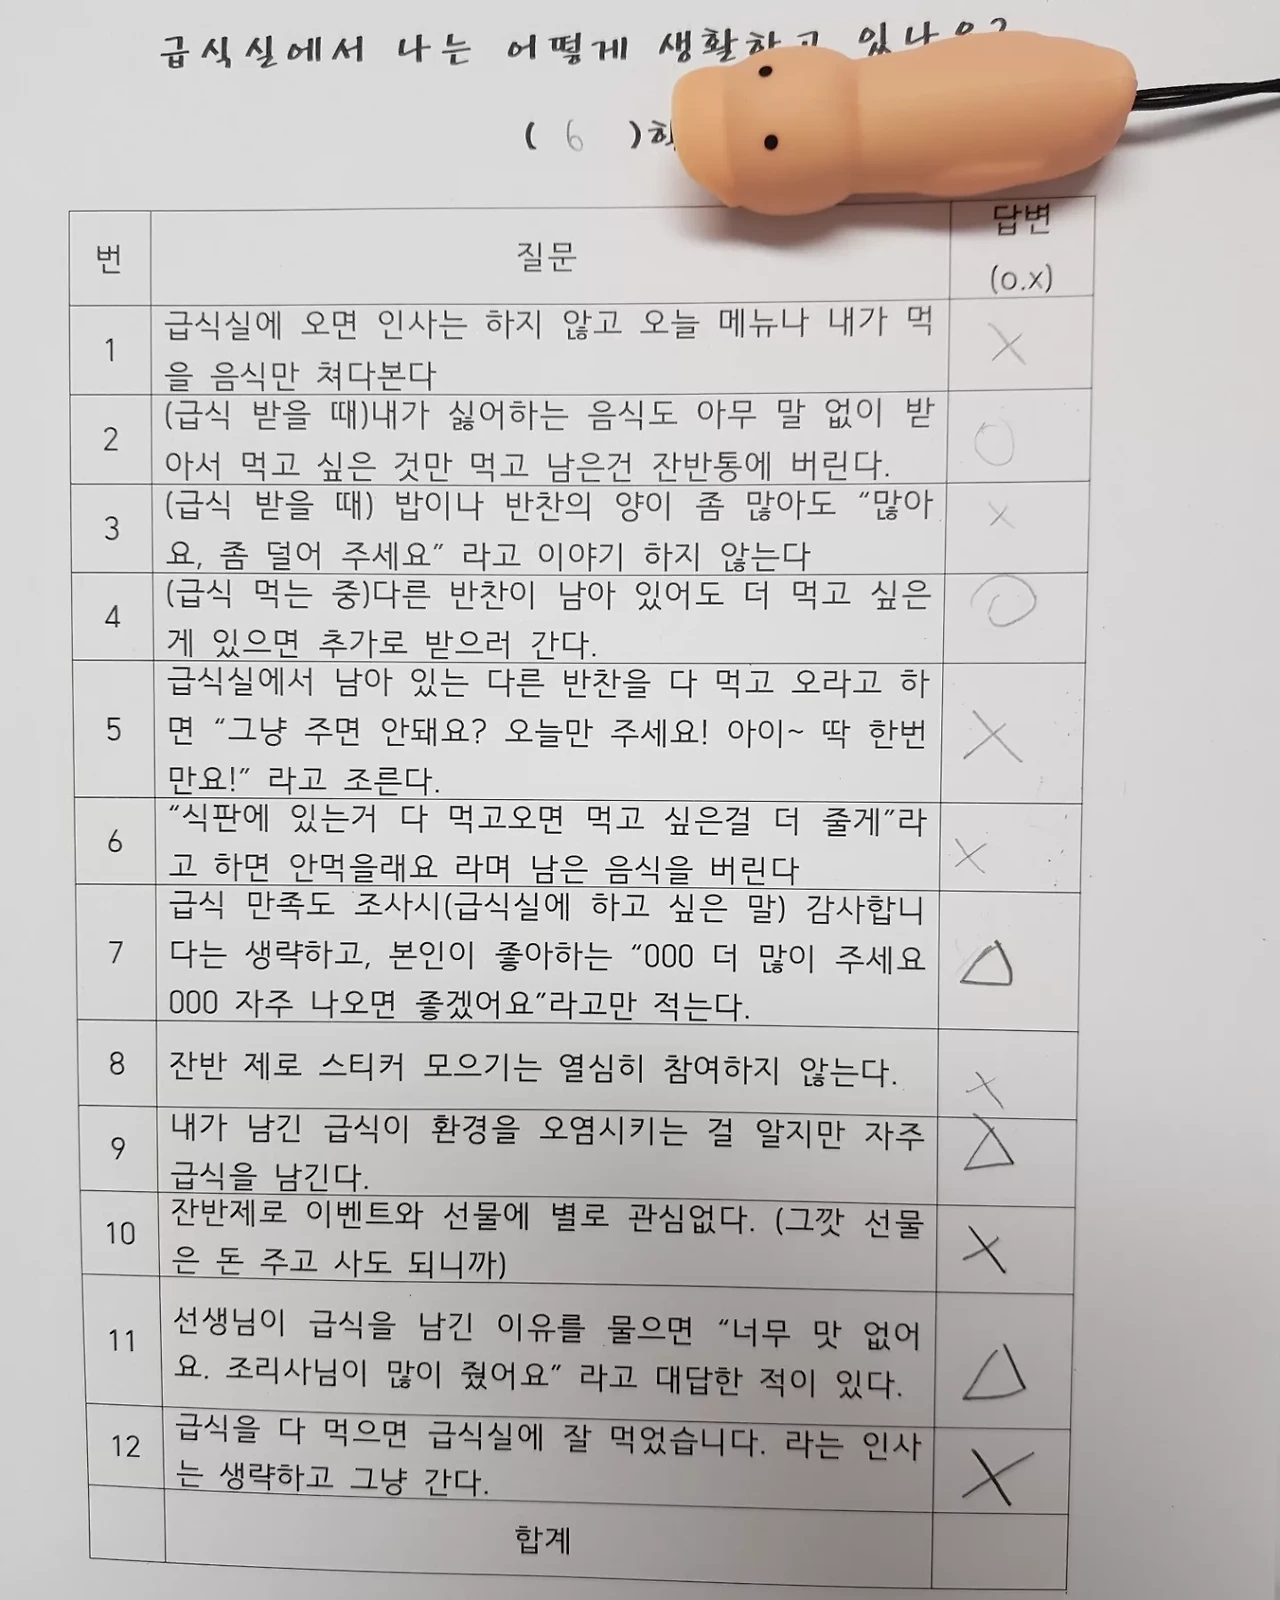 급식실에서 나는 어떻게 생활하고 있나요?
( 6 )학
번 질문 답변
(o.x)
1 급식실에 오면 인사는 하지 않고 오늘 메뉴나 내가 먹 X
을 음식만 쳐다본다
2 (급식 받을 때)내가 싫어하는 음식도 아무 말 없이 받 O
아서 먹고 싶은 것만 먹고 남은건 잔반통에 버린다.
3 (급식 받을 때) 밥이나 반찬의 양이 좀 많아도 “많아 X
요, 좀 덜어 주세요” 라고 이야기 하지 않는다
4 (급식 먹는 중)다른 반찬이 남아 있어도 더 먹고 싶은 O
게 있으면 추가로 받으러 간다.
5 급식실에서 남아 있는 다른 반찬을 다 먹고 오라고 하
면 “그냥 주면 안돼요? 오늘만 주세요! 아이~ 딱 한번 X
만요!” 라고 조른다.
6 “식판에 있는거 다 먹고오면 먹고 싶은걸 더 줄게”라 X
고 하면 안먹을래요 라며 남은 음식을 버린다
7 급식 만족도 조사시(급식실에 하고 싶은 말) 감사합니
다는 생략하고, 본인이 좋아하는 “000 더 많이 주세요 △
000 자주 나오면 좋겠어요”라고만 적는다.
8 잔반 제로 스티커 모으기는 열심히 참여하지 않는다. X
9 내가 남긴 급식이 환경을 오염시키는 걸 알지만 자주 △
급식을 남긴다.
10 잔반제로 이벤트와 선물에 별로 관심없다. (그깟 선물 X
은 돈 주고 사도 되니까)
11 선생님이 급식을 남긴 이유를 물으면 “너무 맛 없어 △
요. 조리사님이 많이 줬어요” 라고 대답한 적이 있다.
12 급식을 다 먹으면 급식실에 잘 먹었습니다. 라는 인사 X
는 생략하고 그냥 간다.
합계